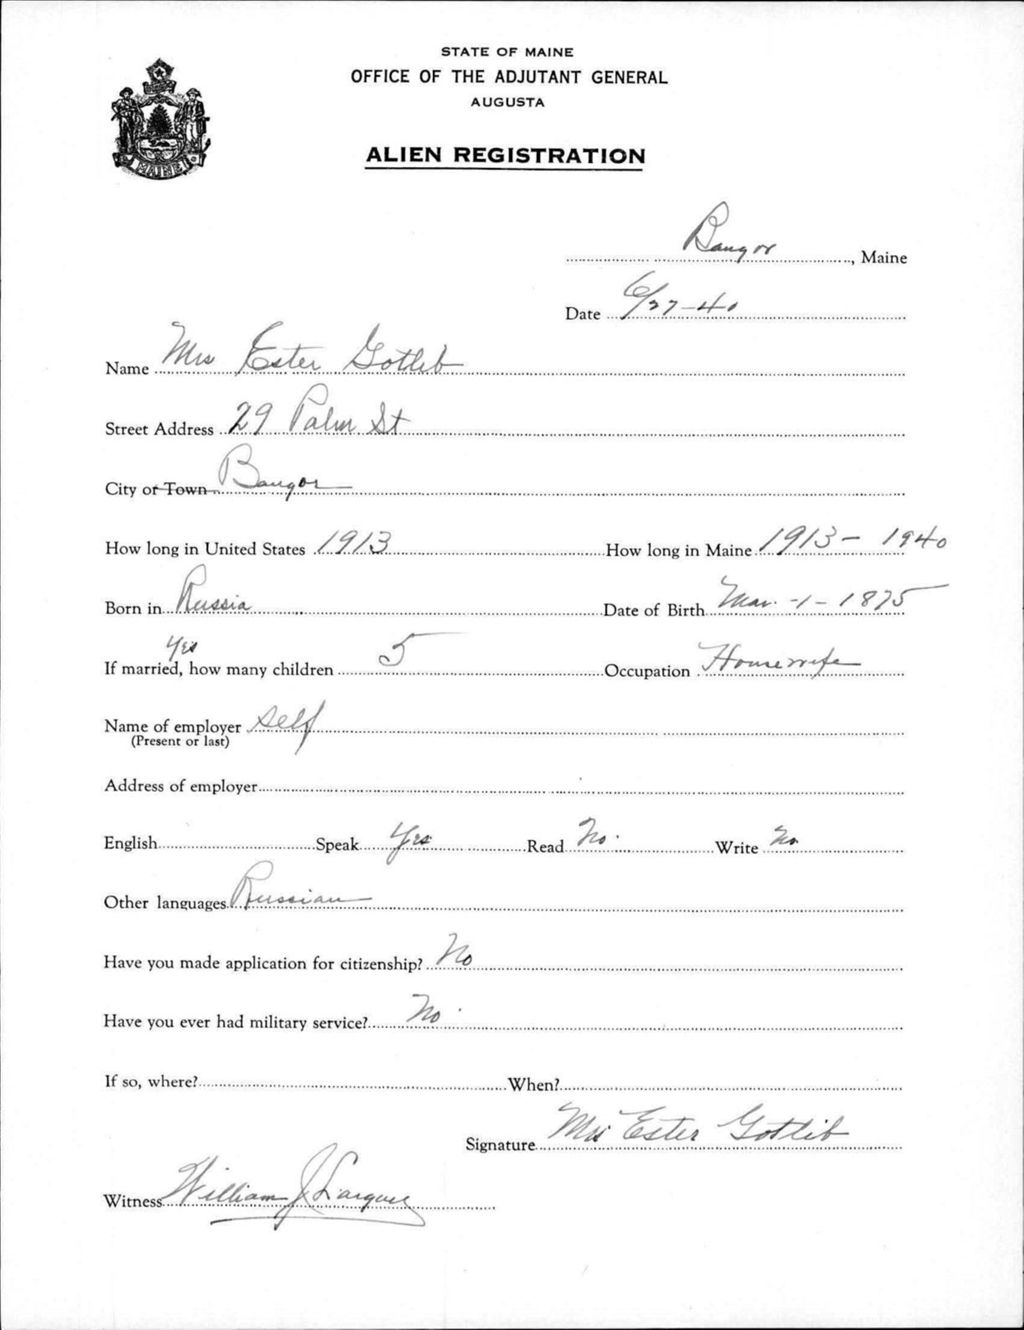 STATE OF MAINE
OFFICE OF THE ADJUTANT GENERAL
AUGUSTA
ALIEN REGISTRATION
MAINE
Bangor, Maine
Date 6/27-40
Name Mrs Ester Gotlib
Street Address 29 Palm St
City or Town Bangor
How long in United States 1913 How long in Maine 1913 - 1940
Born in Russia Date of Birth Mar. -1- 1875
Yes
If married, how many children 5 Occupation Housewife
Name of employer self
(Present or last)
Address of employer
English Speak Yes Read No. Write No
Other languages Russian
Have you made application for citizenship? No
Have you ever had military service? No.
If so, where? When?
Signature Mrs Ester Gotlib
Witness William J